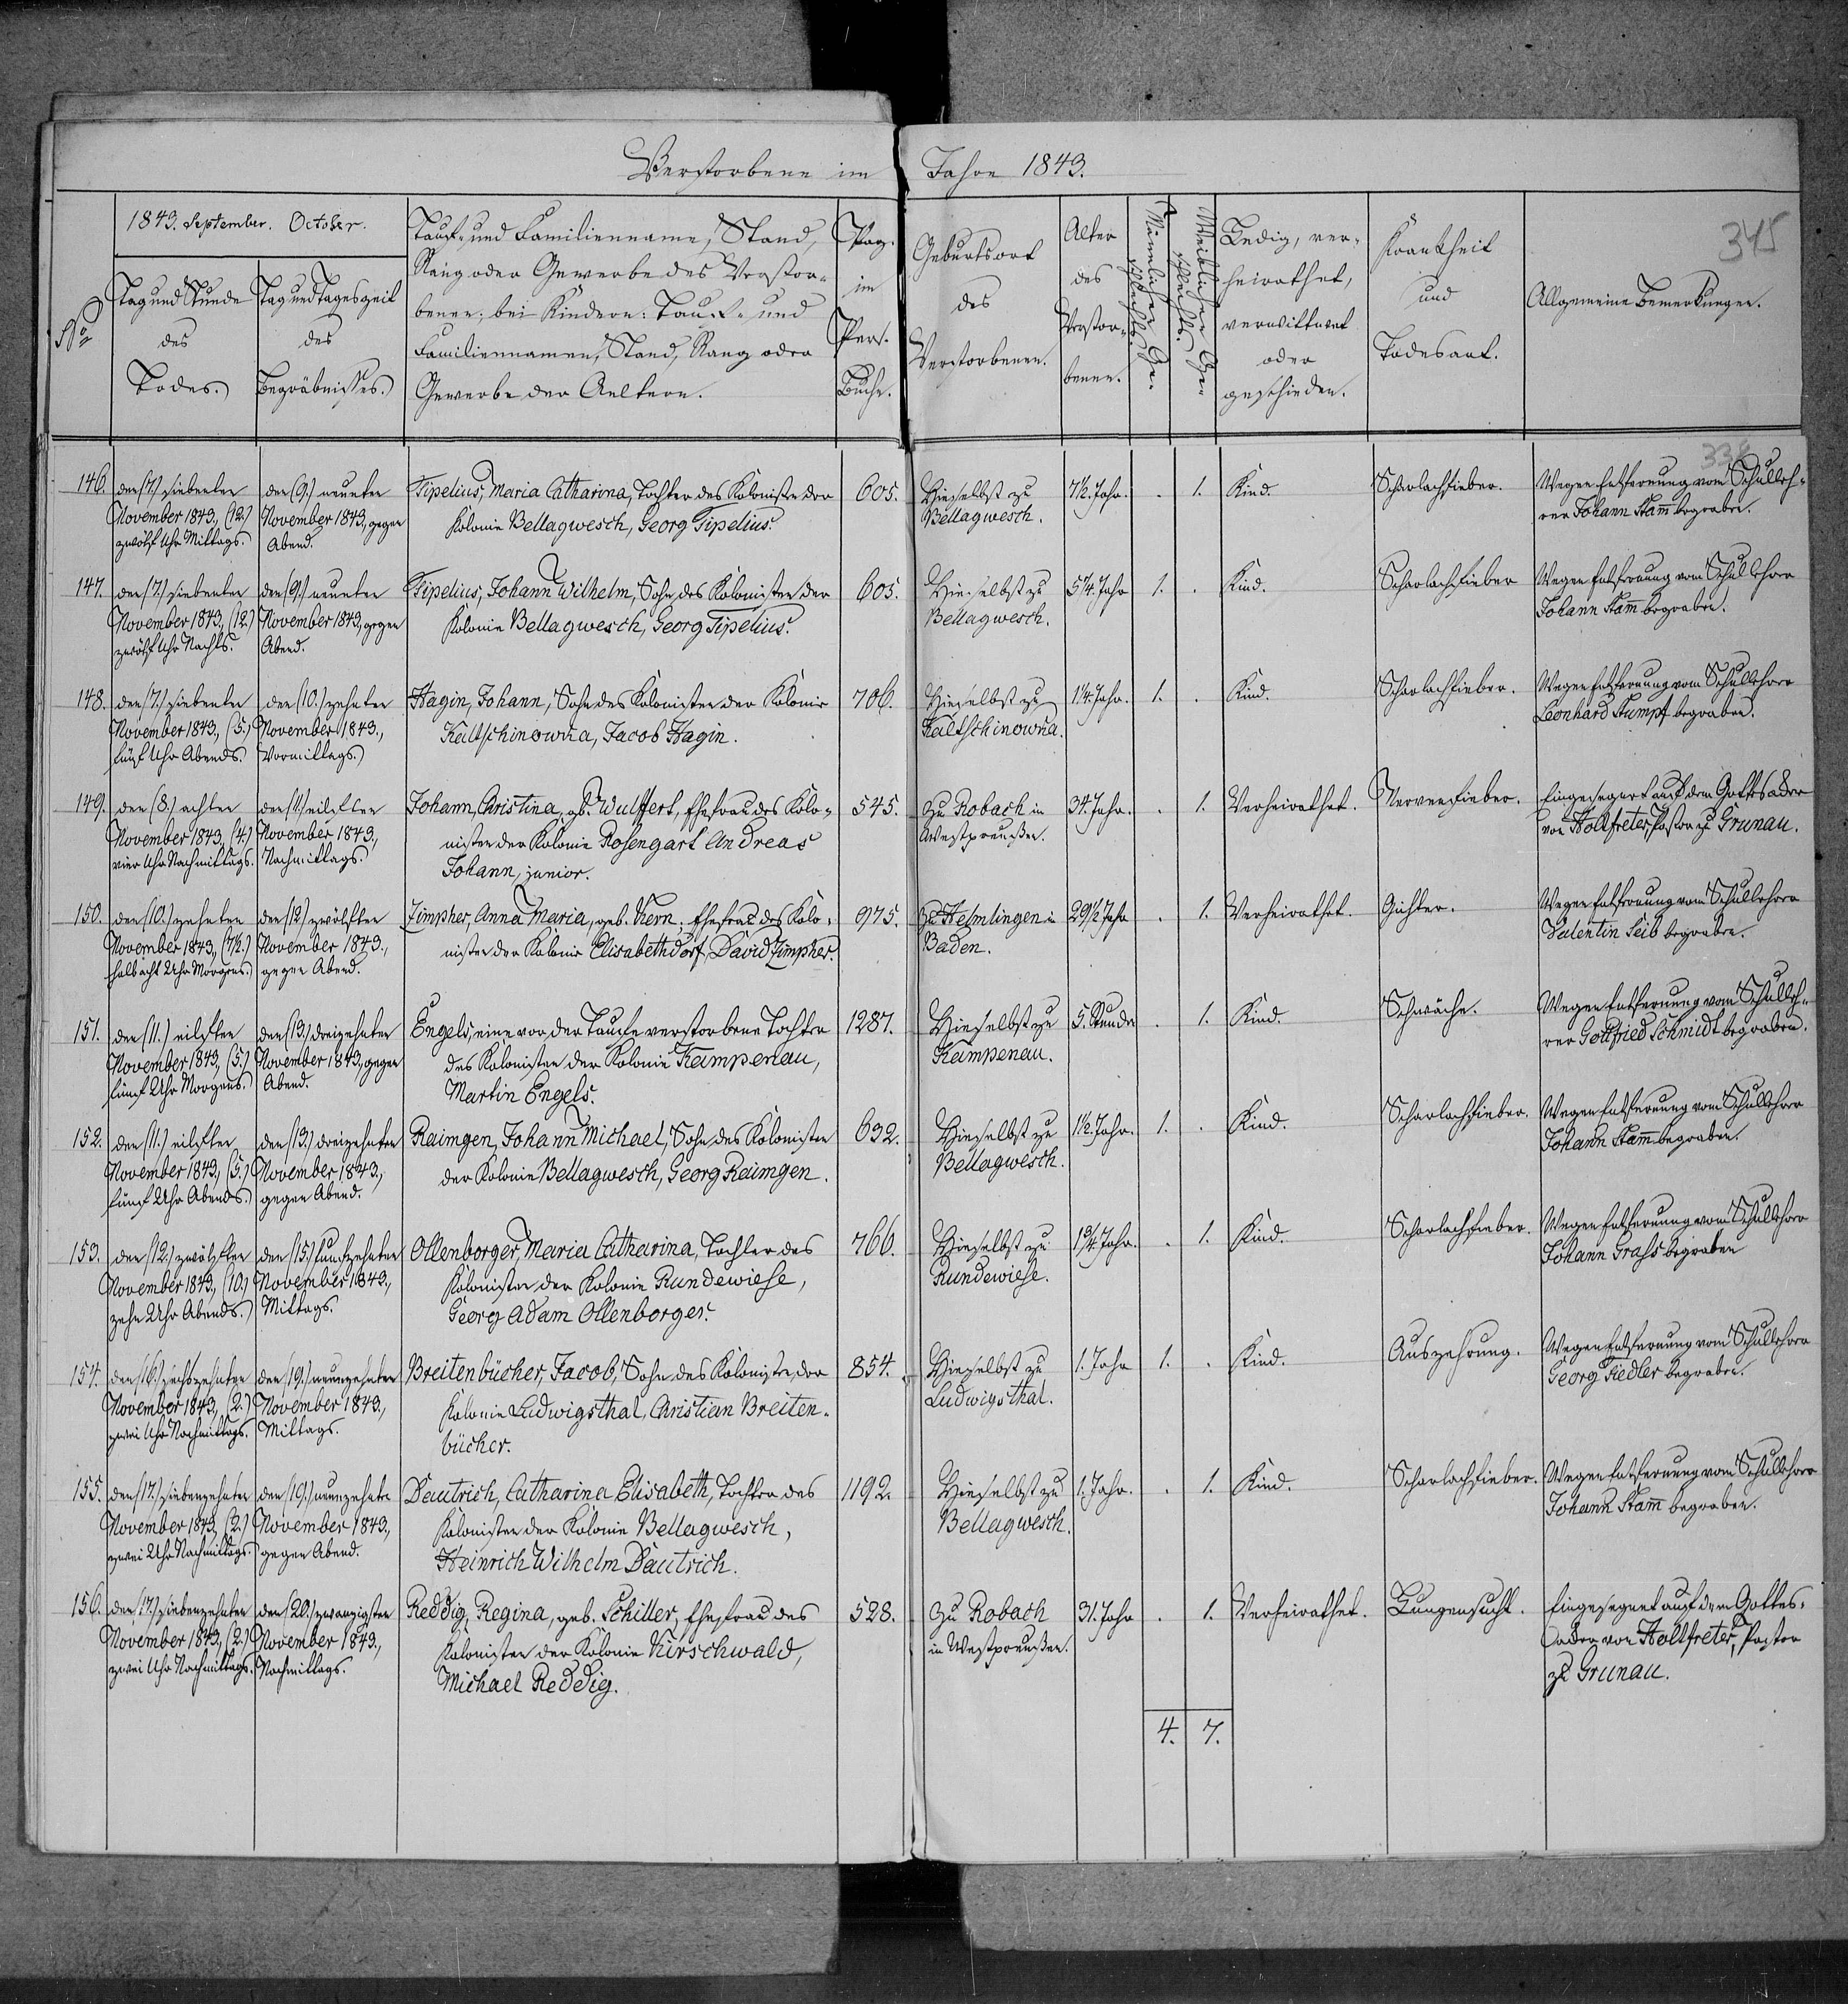 Verstorbene im Jahre 1843.
345
1843. September. October.
No
Tag und Stunde
des
Todes.
Tag und Tageszeit
des
Begräbnisses.
Tauf- und Familienname, Stand,
Rang oder Gewerbe des Verstor-
benen; bei Kindern: Tauf- und
Familiennamen, Stand, Rang oder
Gewerbe der Aeltern.
Pag.
im
Pers.
Buche.
Geburtsort
des
Verstorbenen.
Alter
des
Verstor-
benen.
Männlichen Ge-
schlechts.
Weiblichen Ge-
schlechts.
Ledig, ver-
heirathet,
verwittwet
oder
geschieden.
Krankheit
und
Todesart.
Allgemeine Bemerkungen.
146.
den (7.) siebenten
November 1843, (12.)
zwölf Uhr Mittags.
den (9.) neunten
November 1843, gegen
Abend.
Tipelius, Maria Catharina, Tochter des Kolonisten der
Kolonie Bellagwesch, Georg Tipelius.
605.
Hieselbst zu
Bellagwesch.
7½. Jahr.
. 1. Kind.
Scharlachfieber.
Wegen Entfernung vom Schulleh-
rer Johann Stam̅ begraben.
147.
den (7.) siebenten
November 1843, (12.)
zwölf Uhr Nachts.
den (9.) neunten
November 1843, gegen
Abend.
Tipelius, Johann Wilhelm, Sohn des Kolonisten der
Kolonie Bellagwesch, Georg Tipelius.
605.
Hieselbst zu
Bellagwesch.
5¼. Jahr
1. . Kind.
Scharlachfieber
Wegen Entfernung vom Schullehrer
Johann Stam̅ begraben.
148.
den (7.) siebenten
November 1843, (5.)
fünf Uhr Abends.
den (10.) zehnten
November 1843.,
Vormittags.
Hagin, Johann, Sohn des Kolonisten der Kolonie
Kaltschinowna, Jacob Hagin.
706.
Hieselbst zu
Kaltschinowna.
1¼. Jahr.
1. . Kind.
Scharlachfieber.
Wegen Entfernung vom Schullehrer
Leonhard Stumpf begraben.
149.
den (8.) achten
November 1843, (4.)
vier Uhr Nachmittags.
den (11.) eilften
November 1843.,
Nachmittags.
Johann, Christina, gb. Wulffert, Ehefrau des Kolo-
nisten der Kolonie Rosengart Andreas
Johann, junior.
545.
Zu Robach in
Westpreußen.
34. Jahr.
. 1. Verheirathet.
Nervenfieber.
Eingesegnet auf dem Gottesacker
von Holtfreter, Pastor zu Grunau.
150.
den (10.) zehnten
November 1843, (7½.)
halb acht Uhr Morgens.
den (12.) zwölften
November 1843.,
gegen Abend.
Zimpher, Anna Maria, geb. Kern; Ehefrau des Kolo-
nisten der Kolonie Elisabethdorf, David Zimpher.
975.
Zu Helmlingen in
Baden.
29½ Jahr
. 1. Verheirathet.
Gichter.
Wegen Entfernung vom Schullehrer
Valentin Seib begraben.
151.
den (11.) eilften
November 1843, (5.)
fünf Uhr Morgens.
den (13.) dreizehnten
November 1843, gegen
Abend.
Engels, eine vor der Taufe verstorbene Tochter
des Kolonisten der Kolonie Kampenau,
Martin Engels.
1287.
Hieselbst zu
Kampenau.
5. Stunden
. 1. Kind.
Schwäche.
Wegen Entfernung vom Schulleh-
rer Gottfried Schmidt begraben.
152.
den (11.) eilften
November 1843, (5.)
fünf Uhr Abends.
den (13.) dreizehnten
November 1843,
gegen Abend.
Raimgen, Johann Michael, Sohn des Kolonisten
der Kolonie Bellagwesch, Georg Raimgen.
632.
Hieselbst zu
Bellagwesch.
1½. Jahr.
1. . Kind.
Scharlachfieber.
Wegen Entfernung vom Schullehrer
Johann Stam̅ begraben.
153.
den (12.) zwölften
November 1843, (10.)
zehn Uhr Abends.
den (15.) funfzehnten
November 1843,
Mittags.
Ollenborger, Maria Catharina, Tochter des
Kolonisten der Kolonie Rundewiese,
Georg Adam Ollenborger.
766.
Hieselbst zu
Rundewiese.
1¾. Jahr.
. 1. Kind.
Scharlachfieber.
Wegen Entfernung vom Schullehrer
Johann Grahs begraben
154.
den (16.) sechszehnten
November 1843, (2.)
zwei Uhr Nachmittags.
den (19.) neunzehnten
November 1843.,
Mittags.
Breitenbücher, Jacob, Sohn des Kolonisten der
Kolonie Ludwigsthal, Christian Breiten-
bücher.
854.
Hieselbst zu
Ludwigsthal.
1. Jahr
1. . Kind.
Auszehrung.
Wegen Entfernung vom Schullehrer
Georg Fiedler begraben.
155.
den (17.) siebenzehnten
November 1843, (2.)
zwei Uhr Nachmittags.
den (19.) neunzehnten
November 1843,
gegen Abend.
Dautrich, Catharina Elisabeth, Tochter des
Kolonisten der Kolonie Bellagwesch,
Heinrich Wilhelm Dautrich.
1192.
Hieselbst zu
Bellagwesch.
1. Jahr.
. 1. Kind.
Scharlachfieber.
Wegen Entfernung vom Schullehrer
Johann Stam̅ begraben.
156.
den (17.) siebenzehnten
November 1843, (2.)
zwei Uhr Nachmittags.
den (20.) zwanzigsten
November 1843,
Nachmittags.
Reddig, Regina, geb. Schiller, Ehefrau des
Kolonisten der Kolonie Kirschwald,
Michael Reddig.
528.
Zu Robach
in Westpreußen.
31. Jahr
. 1. Verheirathet.
Lungensucht.
Eingesegnet auf dem Gottes-
acker von Holtfreter, Pastor
zu Grunau.
4. 7.